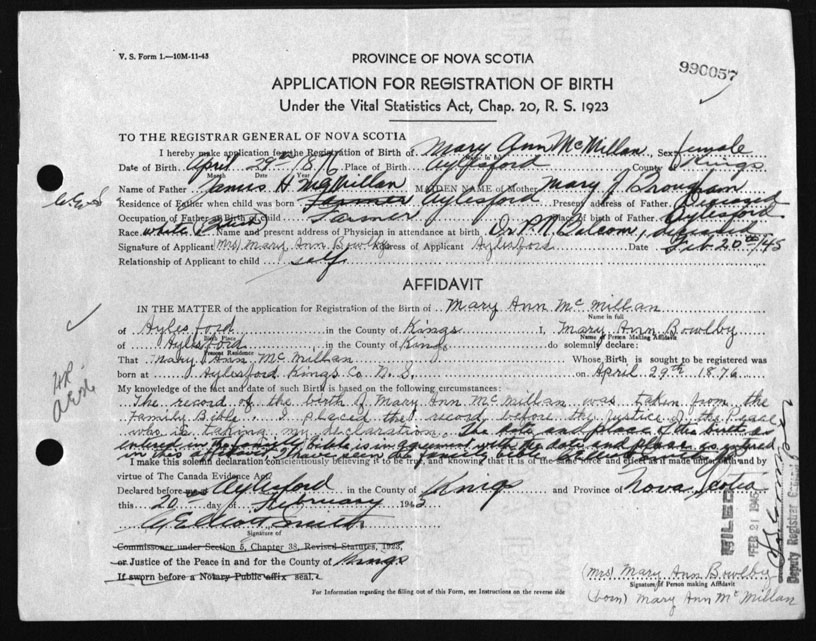 V. S. Form 1.—10M-11-43
PROVINCE OF NOVA SCOTIA
990057
APPLICATION FOR REGISTRATION OF BIRTH
Under the Vital Statistics Act, Chap. 20, R. S. 1923
TO THE REGISTRAR GENERAL OF NOVA SCOTIA
I hereby make application for the Registration of Birth of Mary Ann McMillan, Sex female
Date of Birth April 29th 1876 Place of Birth Aylesford County Kings
Date Month Year
Name of Father James H McMillan MAIDEN NAME of Mother Mary J
Residence of Father when child was born Farmer Aylesford Present address of Father Deceased
Occupation of Father at Birth of child Farmer Place of birth of Father Aylesford
Race white Name and present address of Physician in attendance at birth Dr P.N. Balcom, deceased
Signature of Applicant (Mrs) Mary Ann Bowlby Address of Applicant Aylesford Date Feb 20th/45
Relationship of Applicant to child self
AFFIDAVIT
IN THE MATTER of the application for Registration of the Birth of Mary Ann McMillan
Name in full
of Aylesford in the County of Kings I, Mary Ann Bowlby
Birth Place Name of Person Making Affidavit
of Aylesford in the County of Kings do solemnly declare:
Present Residence
That Mary Ann McMillan Whose Birth is sought to be registered was
born at Aylesford Kings Co N.S. on April 29th 1876
My knowledge of the fact and date of such Birth is based on the following circumstances:
The record of the birth of Mary Ann McMillan was taken from the
Family Bible. I placed the record before the Justice of the Peace
who is taking my declaration. The date and place of the birth as
entered in the family bible is in agreement with the date and place as entered
in this affidavit I have seen the family bible
I make this solemn declaration conscientiously believing it to be true, and knowing that it is of the same force and effect as if made under oath and by
virtue of The Canada Evidence Act.
Declared before me Aylesford in the County of Kings and Province of Nova Scotia
this 20 day of February 1945
Elliott Smith
Signature of
Commissioner under Section 5, Chapter 38, Revised Statutes, 1923,
or Justice of the Peace in and for the County of Kings
If sworn before a Notary Public affix seal.
For Information regarding the filling out of this Form, see Instructions on the reverse side
(Mrs) Mary Ann Bowlby
Signature of Person making Affidavit
(born) Mary Ann McMillan
FILED
FEB 21 1945
Deputy Registrar General